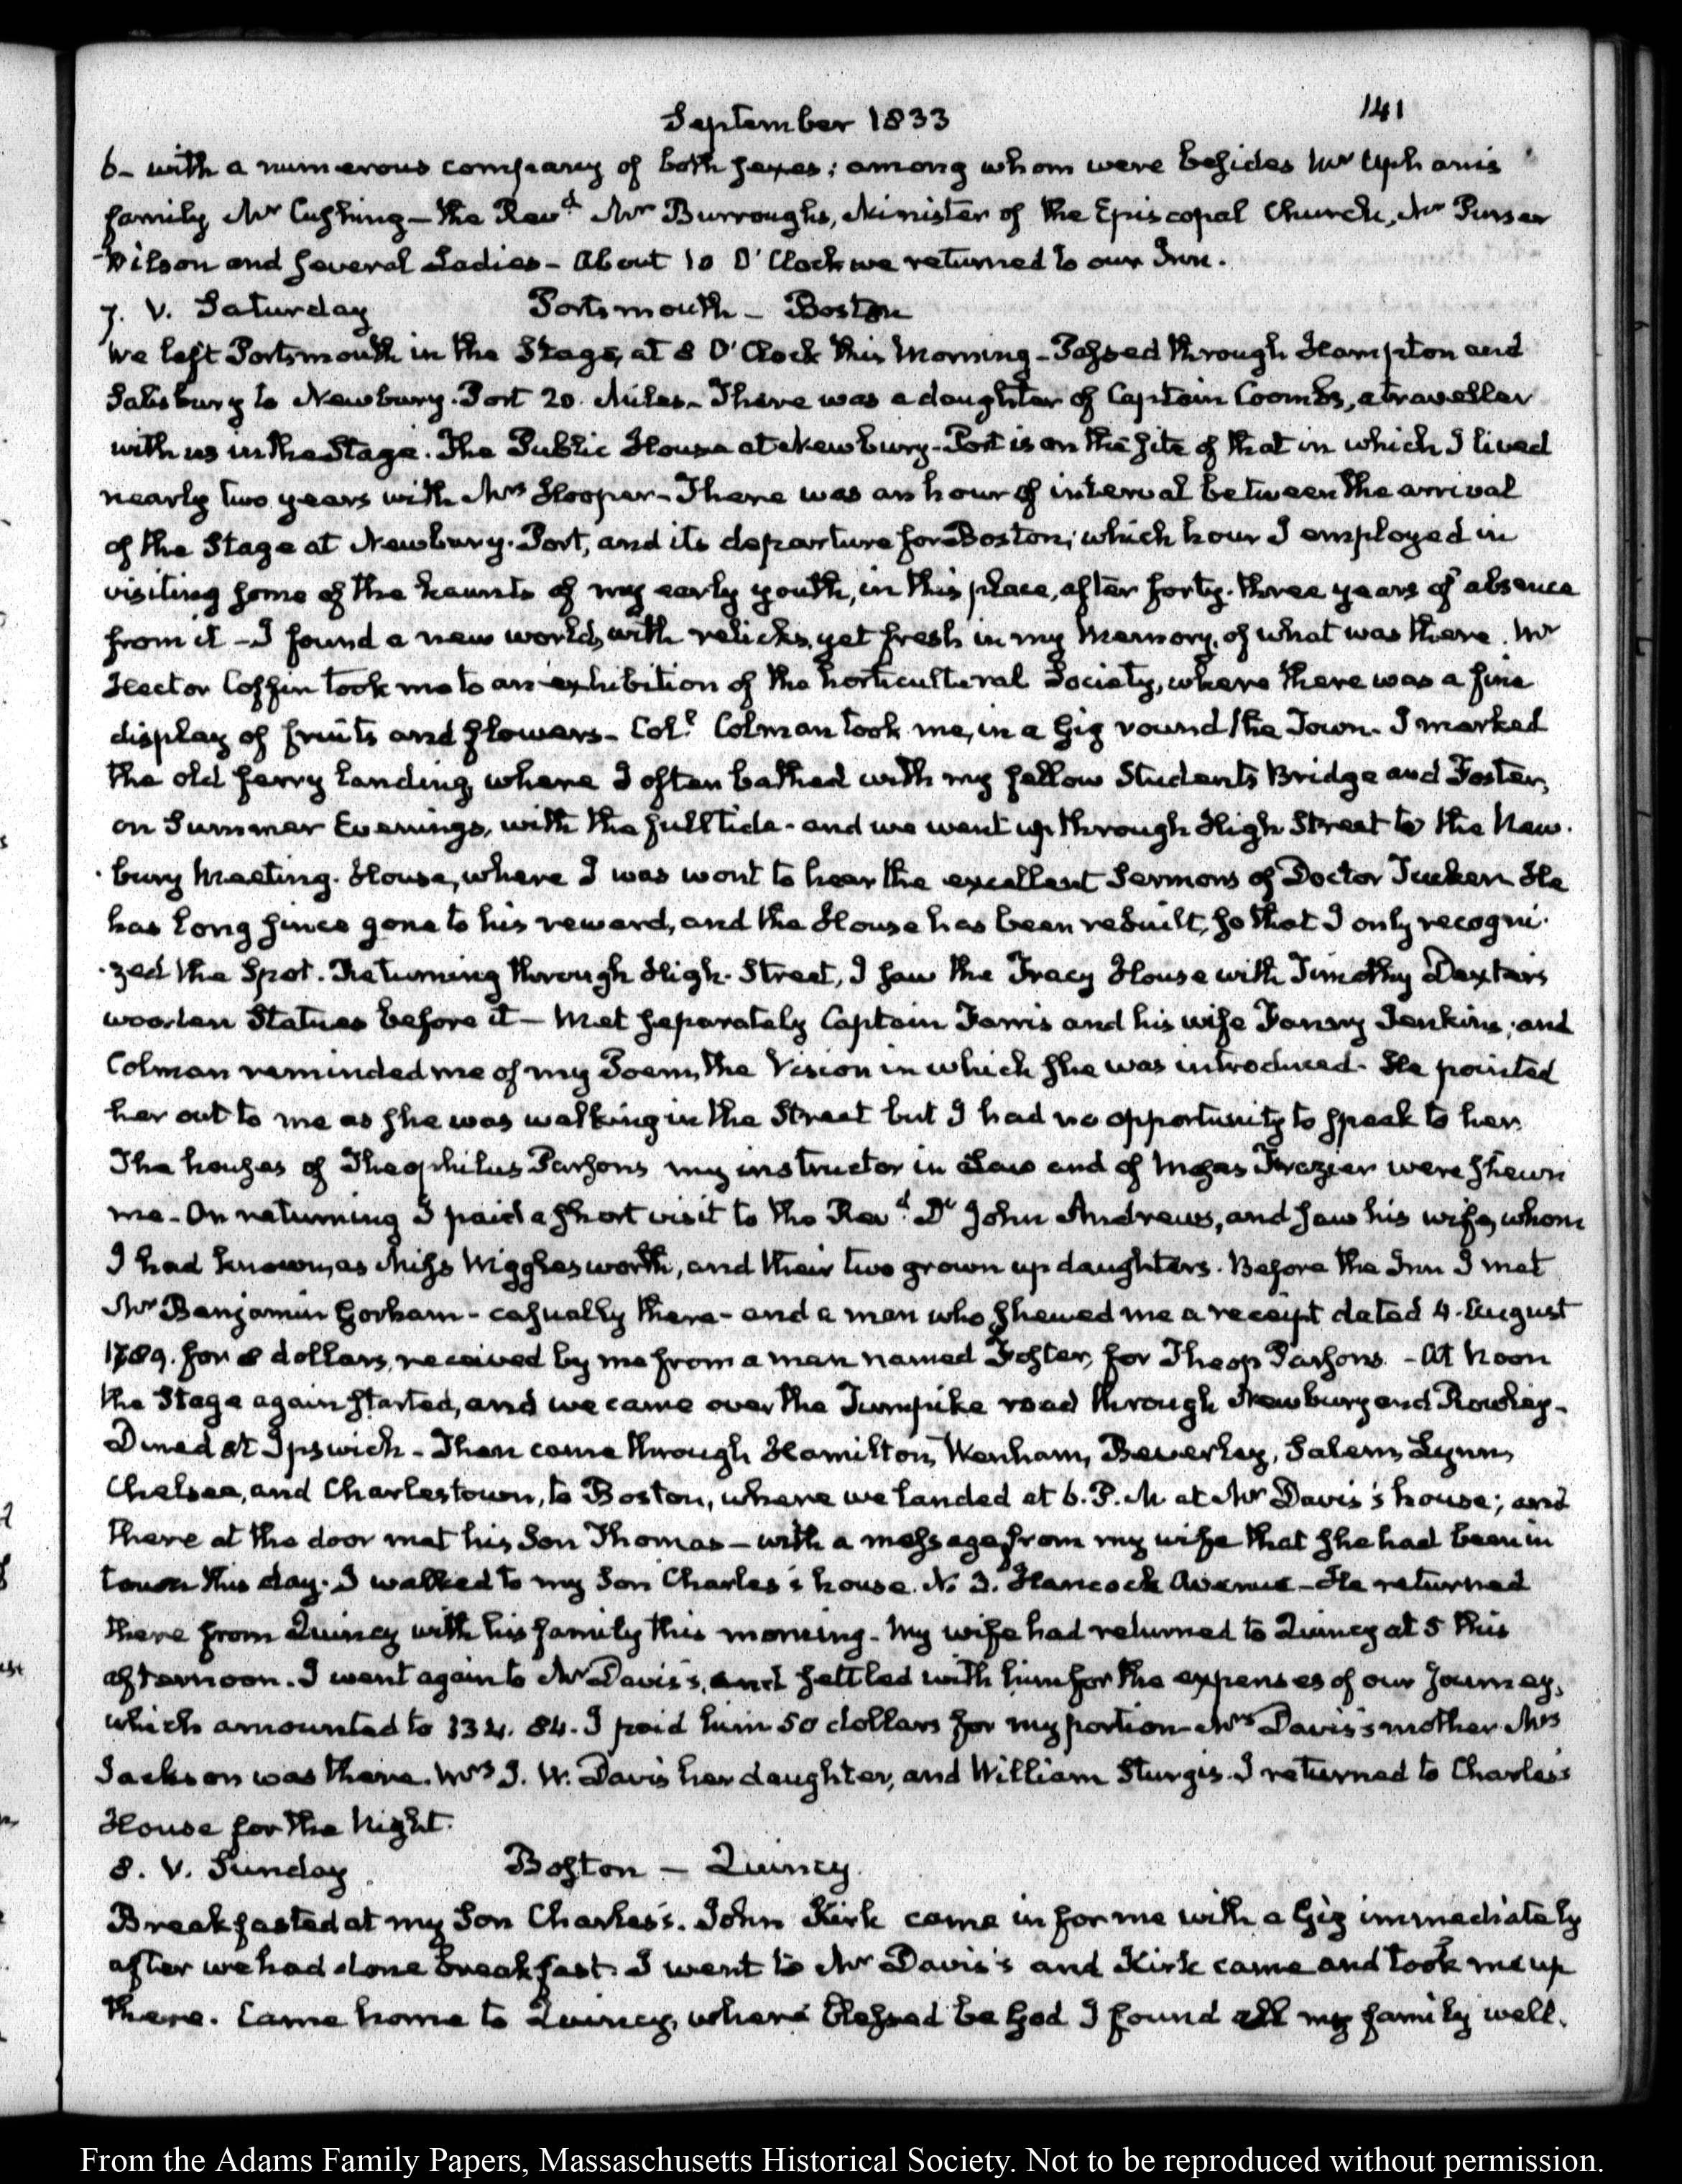 September 1833
141
6- with a numerous company of both sexes; among whom were besides Mr Upham's
family, Mr Cushing - the Revd. Mr Burroughs, Minister of the Episcopal Church, Mr Purser
Wilson and several Ladies - About 10 O'Clock we returned to our Inn.
7. V. Saturday Portsmouth - Boston
We left Portsmouth in the Stage, at 8 O'Clock this Morning - Passed through Hampton and
Salisbury to Newbury-Port 20 Miles - There was a daughter of Captain Coombs, a traveller
with us in the Stage. The Public House at Newbury-Port is on the site of that in which I lived
nearly two years with Mrs Hooper - There was an hour of interval between the arrival
of the Stage at Newbury-Port, and its departure for Boston; which hour I employed in
visiting some of the haunts of my early youth, in this place, after forty-three years of absence
from it - I found a new world, with relicks, yet fresh in my Memory, of what was there. Mr
Hector Coffin took me to an exhibition of the horticultural Society, where there was a fine
display of fruits and flowers - Coll. Colman took me, in a Gig round the Town - I marked
the old ferry landing, where I often bathed with my fellow Students Bridge and Foster,
on Summer Evenings, with the full tide - and we went up through High Street to the New-
-bury Meeting-House, where I was wont to hear the excellent Sermons of Doctor Tucker. He
has long since gone to his reward, and the House has been rebuilt, so that I only recogni-
-zed the Spot. Returning through High-Street, I saw the Tracy House with Timothy Dexter's
wooden Statues before it - Met separately Captain Farris and his wife Fanny Jenkins; and
Colman reminded me of my Poem, the Vision in which she was introduced - He pointed
her out to me as she was walking in the Street but I had no opportunity to speak to her.
The houses of Theophilus Parsons my instructor in Law and of Moses Frazier were shewn
me - On returning I paid a short visit to the Revd. Dr John Andrews, and saw his wife, whom
I had known, as Miss Wigglesworth, and their two grown up daughters. Before the Inn I met
Mr Benjamin Gorham - casually there - and a man who shewed me a receipt dated 4. August
1789. for 8 dollars, received by me from a man named Foster, for Theop Parsons. - At Noon
the Stage again started, and we came over the Turnpike road through Newbury and Rowley -
Dined at Ipswich - Then came through Hamilton, Wenham, Beverley, Salem, Lynn,
Chelsea, and Charlestown, to Boston, where we landed at 6. P.M at Mr Davis's house; and
there at the door met his Son Thomas - with a message from my wife that she had been in
town this day. I walked to my Son Charles's house. N. 3. Hancock Avenue - He returned
there from Quincy with his family this morning - My wife had returned to Quincy at 5 this
afternoon. I went again to Mr Davis's, and settled with him for the expenses of our Journey,
which amounted to 134. 84. I paid him 50 dollars for my portion - Mrs Davis's mother Mrs
Jackson was there. Mrs I. W. Davis her daughter, and William Sturgis. I returned to Charles's
House for the Night.
8. V. Sunday Boston - Quincy.
Breakfasted at my Son Charles's. John Kirk came in for me with a Gig immediately
after we had done breakfast. I went to Mr Davis's and Kirk came and took me up
there. Came home to Quincy, where blessed be God I found all my family well.
From the Adams Family Papers, Massachusetts Historical Society. Not to be reproduced without permission.